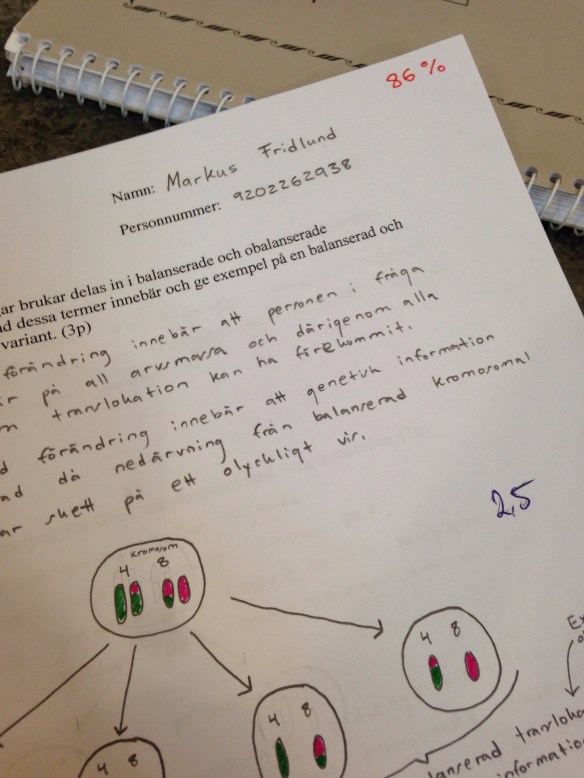 86%
Namn: Markus Fridlund
Personnummer: 9202262938
brukar delas in i balanserade och obalanserade
dessa termer innebär och ge exempel på en balanserad och
variant. (3p)
förändring innebär att personen i fråga
på all arvsmassa och därigenom alla
translokation kan ha förekommit.
förändring innebär att genetisk information
då nedärvning från balanserad kromosomal
skett på ett olyckligt vis.
2,5
kromosom
4 8
4 8
4 8
4 8